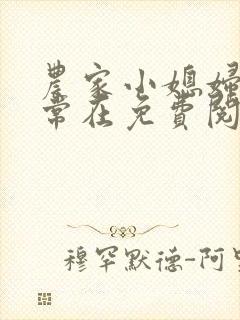 農家小媳婦
常在免費閱
穆罕默德-阿里